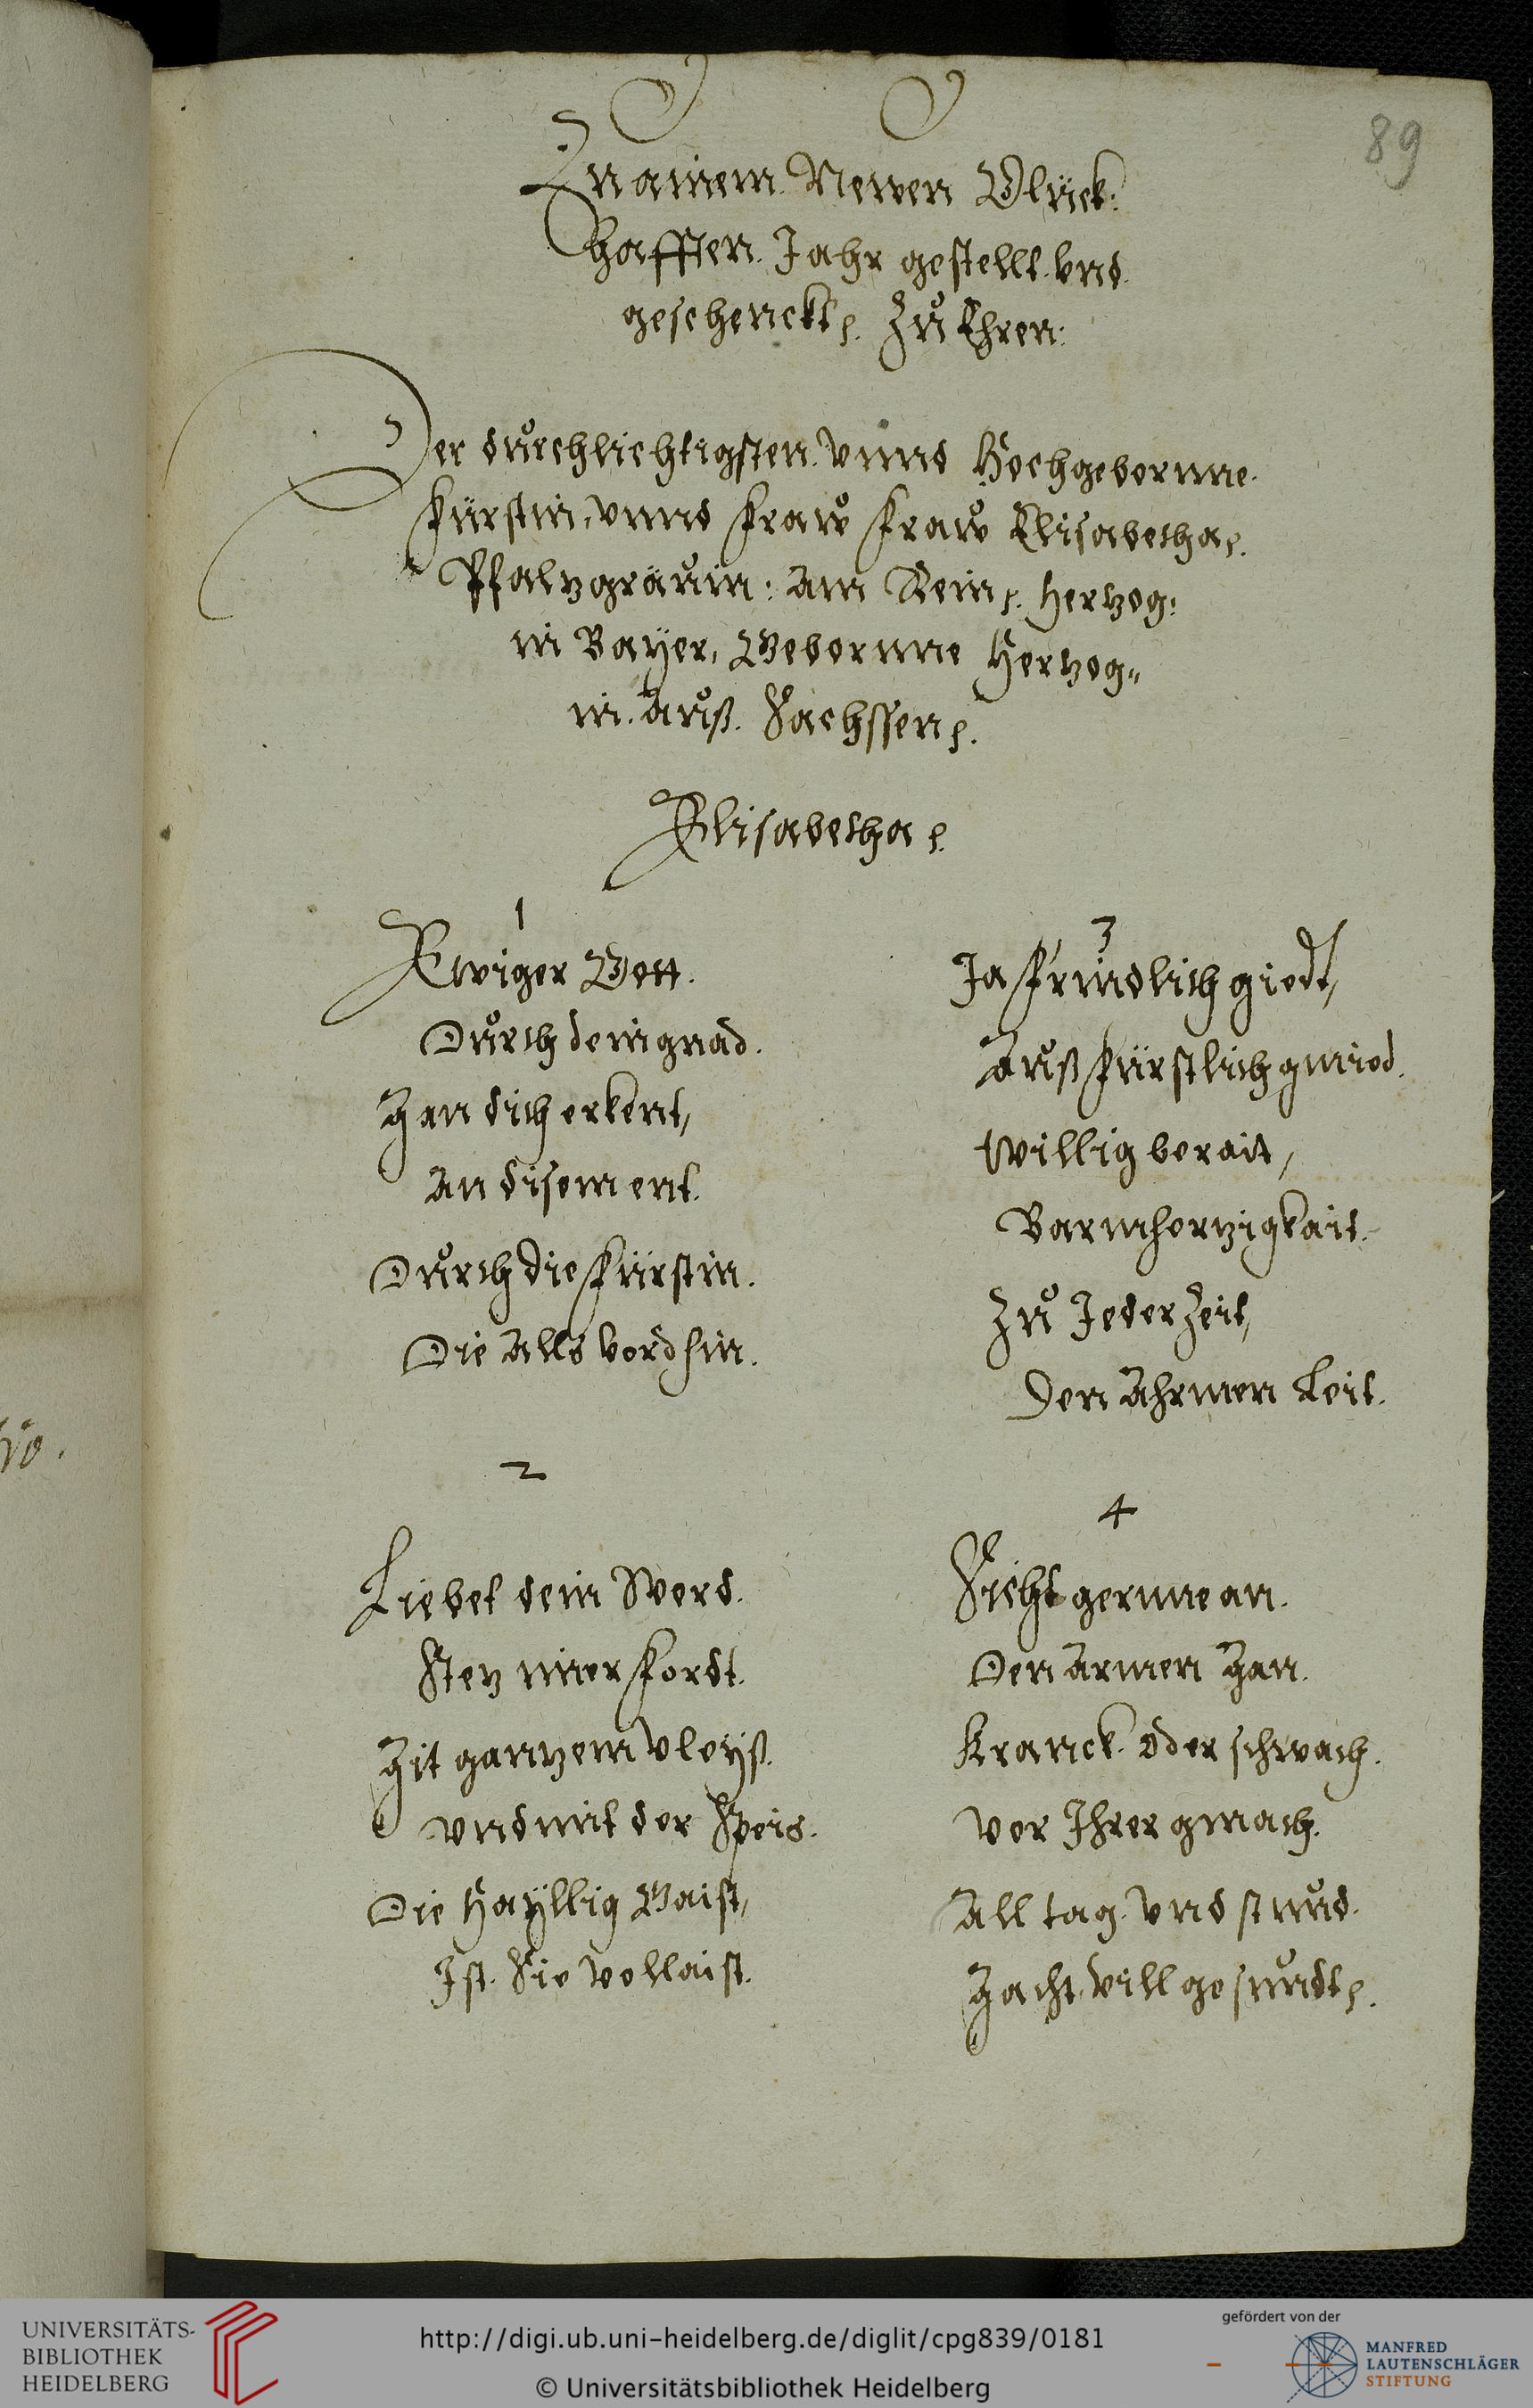 89
Zu ainem Newen Glück:
hafften Jahr gestellt vnd
geschenckt. Zů Ehren:
Der důrchlichtigsten vnnd Hochgebornne
fürstin, vnnd fraw fraw Elisabetha.
Pfaltzgräuin: am Rein. Hertzog:
in Bayer, Gebornne Hertzog„
in. aůß. Sachssen.
Elisabetha.
1
Ewiger Gott.
Důrch dein gnad.
Man dich erkent,
an disem ent.
Důrch die fürstin.
Die alls vordhin.
2
Liebet dein Word.
Stez nimer fordt.
Mit gantzem vleÿß.
vnd mit der Speis.
Die Haÿllig Gaist,
Ist. Sie vollaist.
3
Ja frindlich giedt,
Aůß fürstlich gmied.
Willig berait,
Barmhertzigkait.
Zů Jeder Zeit,
Den Ahrmen Leit.
4
Sicht gernne an.
Den armen Man.
Kranck oder schwach.
vor Ihrer gmach.
All tag vnd stůnd.
Macht vill gesůndt.
UNIVERSITÄTS-
BIBLIOTHEK
HEIDELBERG
http://digi.ub.uni-heidelberg.de/diglit/cpg839/0181
© Universitätsbibliothek Heidelberg
gefördert von der
MANFRED
LAUTENSCHLÄGER
STIFTUNG